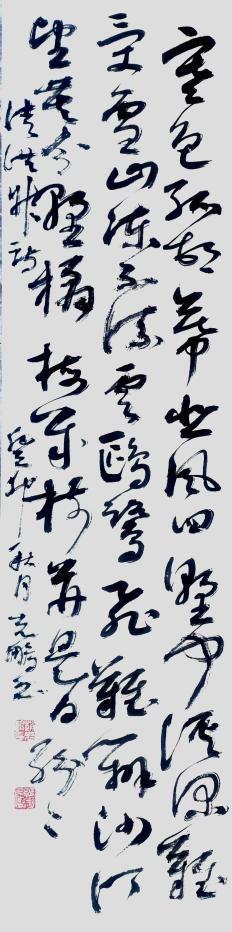 寒色孤村暮悲風四野聞溪深難
受雪山凍不流雲鷗鷺飛難辨沙汀
望莫分野橋梅幾樹並是白紛々
清洪昇詩 癸卯秋月克鵬書